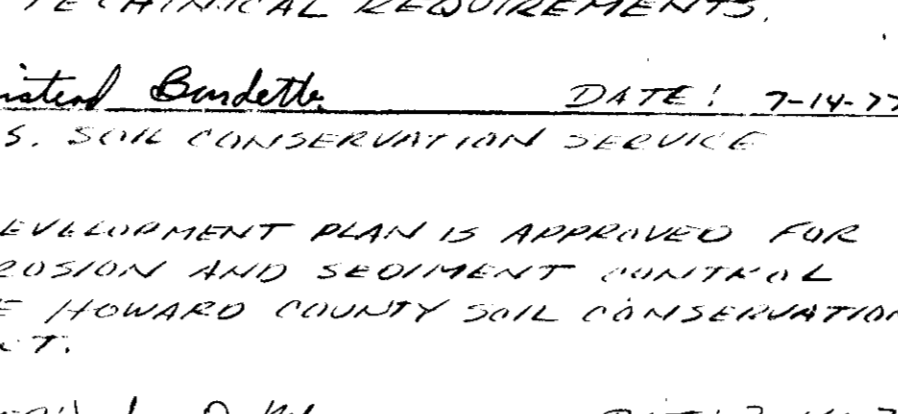 TECHNICAL REQUIREMENTS.
Burdette DATE: 7-14-77
S. SOIL CONSERVATION SERVICE
EVELOPMENT PLAN IS APPROVED FOR
ROSION AND SEDIMENT CONTROL
E HOWARD COUNTY SOIL CONSERVATION
CT.